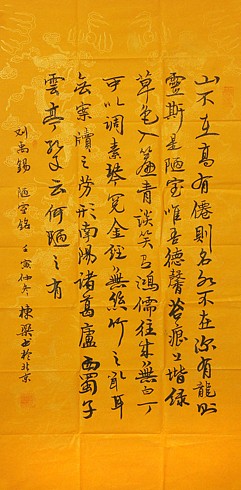 山不在高有僊則名水不在深有龍則
靈斯是陋室唯吾德馨苔痕上堦绿
草色入簾青談笑有鸿儒往来無白丁
可以調素琴阅金經無絲竹之乱耳
無案牘之劳形南陽諸葛廬西蜀子
雲亭孔子云何陋之有
刘禹锡 陋室铭 壬寅仲冬 棟梁书於北京